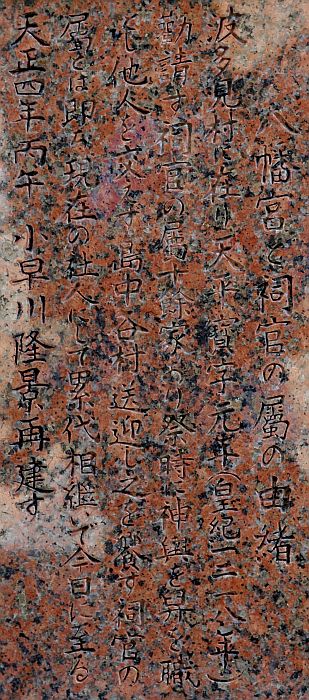 八幡宮と祠官の屬の由緒
波多見村に在り天平寳字元年(皇紀一三一八年)
勧請す祠官の屬十餘家あり祭時に神輿を舁を職
とし他人を交えず島中各村送迎し之を饗す祠官の
屬とは即ち現在の社人にして累代相継で今日に至る
天正四年丙午小早川隆景再建す